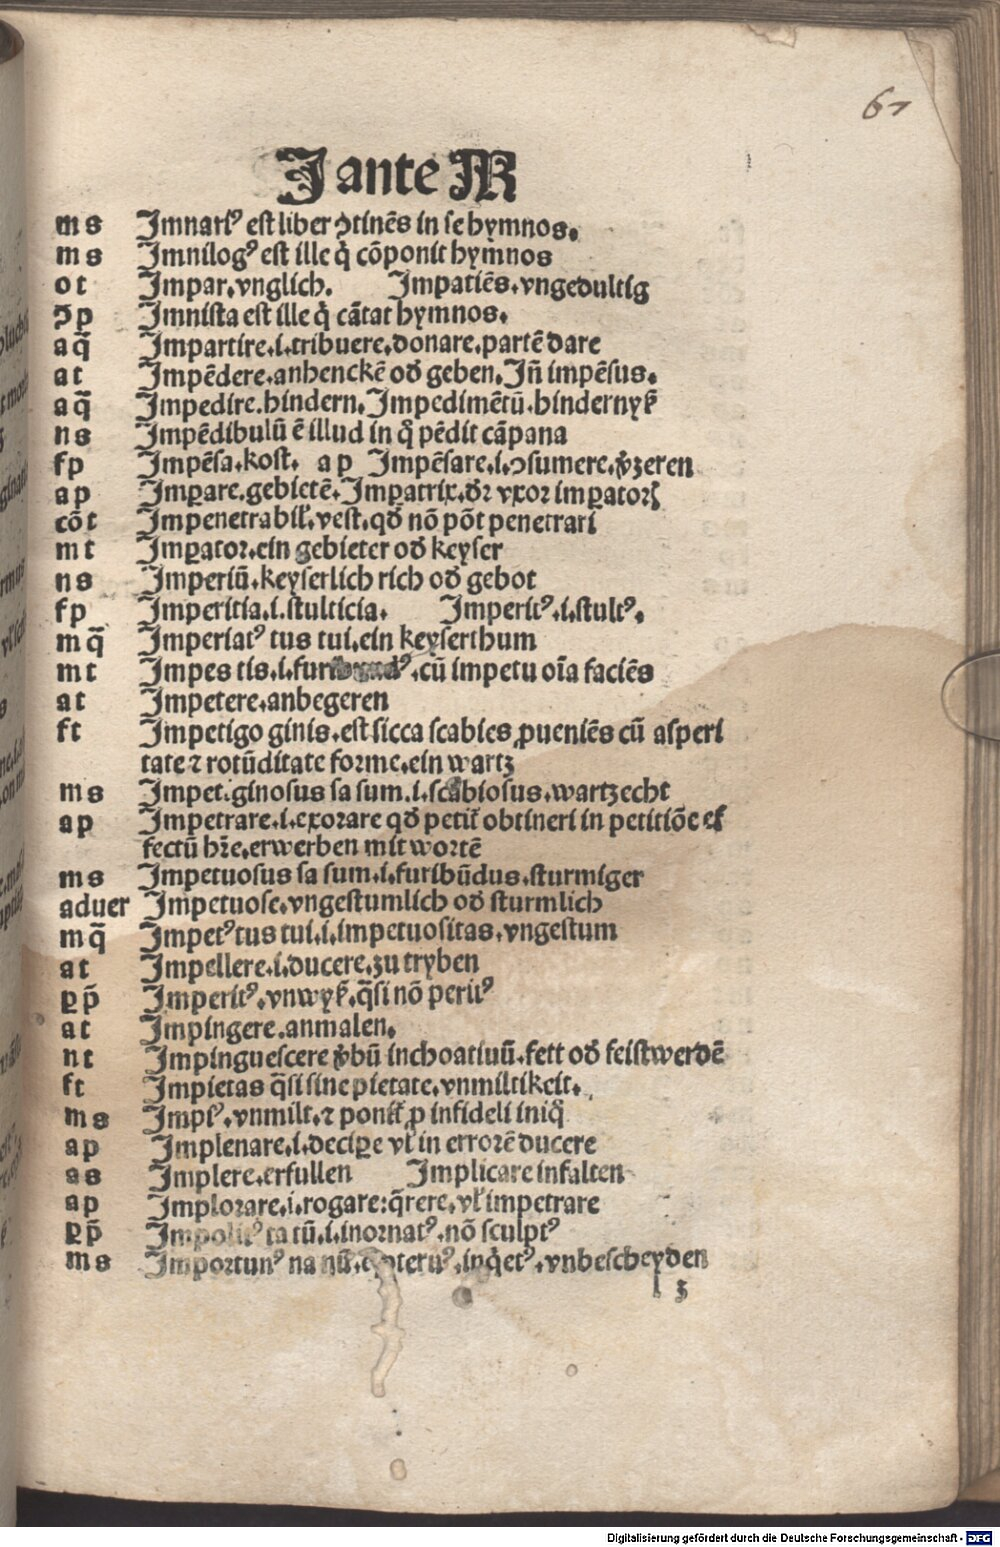 61
J ante M
m s Jmnariꝰ est liber ↄtinēs in se hymnos.
m s Jmnilogꝰ est ille q̇ cōponit hymnos
o t Jmpar.vnglich. Jmpatiēs.vngedultig
ↄp Jmnista est ille q̇ cātat hymnos.
a q̄ Jmpartire.i.tribuere.donare.partē dare
a t Jmpēdere.anhenckē od̓ geben.Jn̄ impēsus.
a q̄ Jmpedire.hindern.Jmpedimētū.hindernyß
n s Jmpēdibulū ē illud in q̇ pēdit cāpana
f p Jmpēsa.kost. a p Jmpēsare.i.ↄsumere.v̓zeren
a p Jmꝑare.gebietē.Jmꝑatrix.d̓r vxor imꝑatorꝭ
cōt Jmpenetrabil̓.vest.qd̓ nō pōt penetrari
m t Jmꝑator.ein gebieter od̓ keyser
n s Jmperiū.keyserlich rich od̓ gebot
f p Jmperitia.i.stulticia. Jmperitꝰ.i.stultꝰ.
m q̄ Jmperiatꝰ tus tui.ein keyserthum
m t Jmpes tis.i.furibundꝰ.cū impetu oīa faciēs
a t Jmpetere.anbegeren
f t Jmpetigo ginis.est sicca scabies ꝓueniēs cū asperi
tate ⁊ rotūditate forme.ein wartz
m s Jmpetiginosus sa sum.i.scabiosus.wartzecht
a p Jmpetrare.i.exorare qd̓ petit̓ obtineri in petitiōe ef
fectū hr̄e.erwerben mit wortē
m s Jmpetuosus sa sum.i.furibūdus.sturmiger
aduer Jmpetuose.vngestumlich od̓ sturmlich
m q̄ Jmpetꝰ tus tui.i.impetuositas.vngestum
a t Jmpellere.i.ducere.zu tryben
ꝑ p̄ Jmperitꝰ.vnwyß.q̄si nō peritꝰ
a t Jmpingere.anmalen.
n t Jmpinguescere v̓bū inchoatiuū.fett od̓ feist werdē
f t Jmpietas q̄si sine pietate.vnmiltikeit.
m s Jmpiꝰ.vnmilt.⁊ ponit̓ ꝓ infideli iniq̇
a p Jmplenare.i.deciꝑe vl̓ in errorē ducere
a s Jmplere.erfullen Jmplicare infalten
a p Jmplorare.i.rogare:q̄rere.vl̓ impetrare
ꝑ p̄ Jmpolitꝰ ta tū.i.inornatꝰ.nō sculptꝰ
m s Jmportunꝰ na nū. inq̇etꝰ.vnbescheyden
l 3
Digitalisierung gefördert durch die Deutsche Forschungsgemeinschaft - DFG